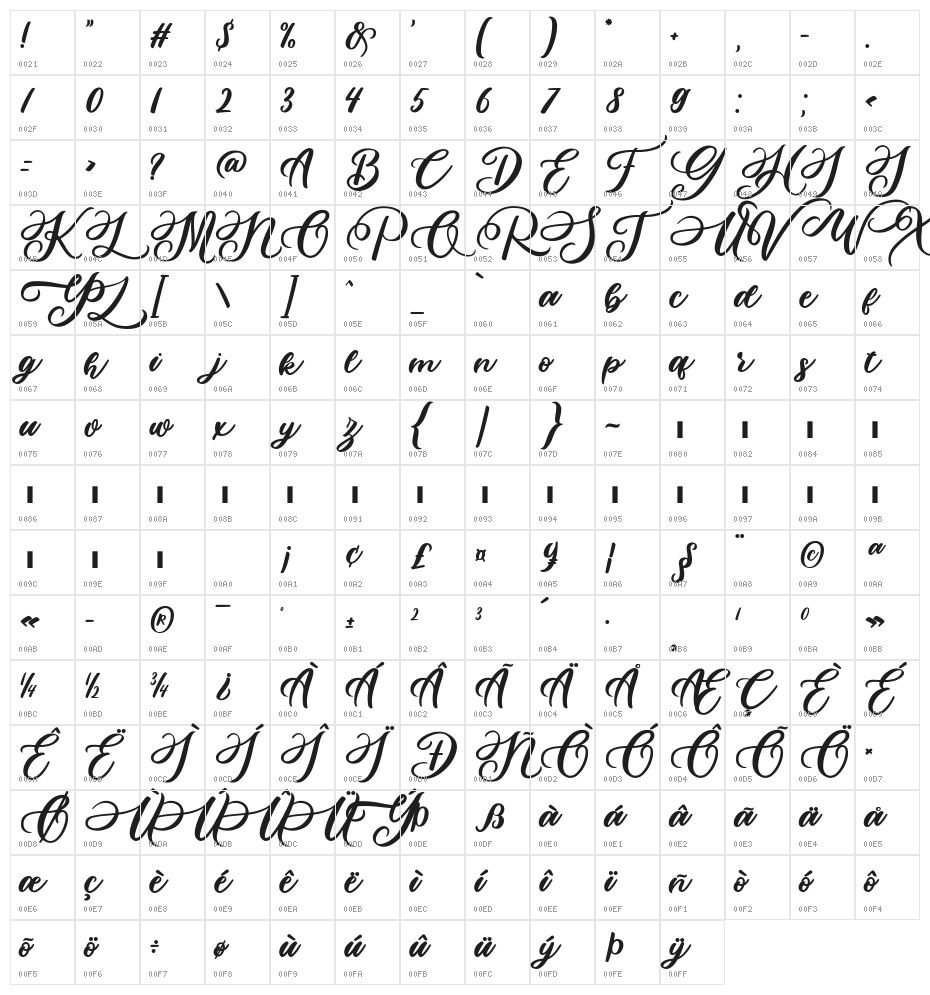 ! " # $ % & ' ( ) * + , - .
0021 0022 0023 0024 0025 0026 0027 0028 0029 002A 002B 002C 002D 002E
/ 0 1 2 3 4 5 6 7 8 9 : ; <
002F 0030 0031 0032 0033 0034 0035 0036 0037 0038 0039 003A 003B 003C
= > ? @ A B C D E F G H I J
003D 003E 003F 0040 0041 0042 0043 0044 0045 0046 0047 0048 0049 004A
K L M N O P Q R S T U V W X
004B 004C 004D 004E 004F 0050 0051 0052 0053 0054 0055 0056 0057 0058
Y Z [ \ ] ^ _ ` a b c d e f
0059 005A 005B 005C 005D 005E 005F 0060 0061 0062 0063 0064 0065 0066
g h i j k l m n o p q r s t
0067 0068 0069 006A 006B 006C 006D 006E 006F 0070 0071 0072 0073 0074
u v w x y z { | } ~
0075 0076 0077 0078 0079 007A 007B 007C 007D 007E 0080 0082 0084 0085
0086 0087 008A 008B 008C 0091 0092 0093 0094 0095 0096 0097 009A 009B
¡ ¢ £ ¤ ¥ ¦ § ¨ © ª
009C 009E 009F 00A0 00A1 00A2 00A3 00A4 00A5 00A6 00A7 00A8 00A9 00AA
« - ® ¯ ° ± ² ³ ´ · ¸ ¹ º »
00AB 00AD 00AE 00AF 00B0 00B1 00B2 00B3 00B4 00B7 00B8 00B9 00BA 00BB
¼ ½ ¾ ¿ À Á Â Ã Ä Å Æ Ç È É
00BC 00BD 00BE 00BF 00C0 00C1 00C2 00C3 00C4 00C5 00C6 00C7 00C8 00C9
Ê Ë Ì Í Î Ï Ð Ñ Ò Ó Ô Õ Ö ×
00CA 00CB 00CC 00CD 00CE 00CF 00D0 00D1 00D2 00D3 00D4 00D5 00D6 00D7
Ø Ù Ú Û Ü Ý Þ ß à á â ã ä å
00D8 00D9 00DA 00DB 00DC 00DD 00DE 00DF 00E0 00E1 00E2 00E3 00E4 00E5
æ ç è é ê ë ì í î ï ñ ò ó ô
00E6 00E7 00E8 00E9 00EA 00EB 00EC 00ED 00EE 00EF 00F1 00F2 00F3 00F4
õ ö ÷ ø ù ú û ü ý þ ÿ
00F5 00F6 00F7 00F8 00F9 00FA 00FB 00FC 00FD 00FE 00FF